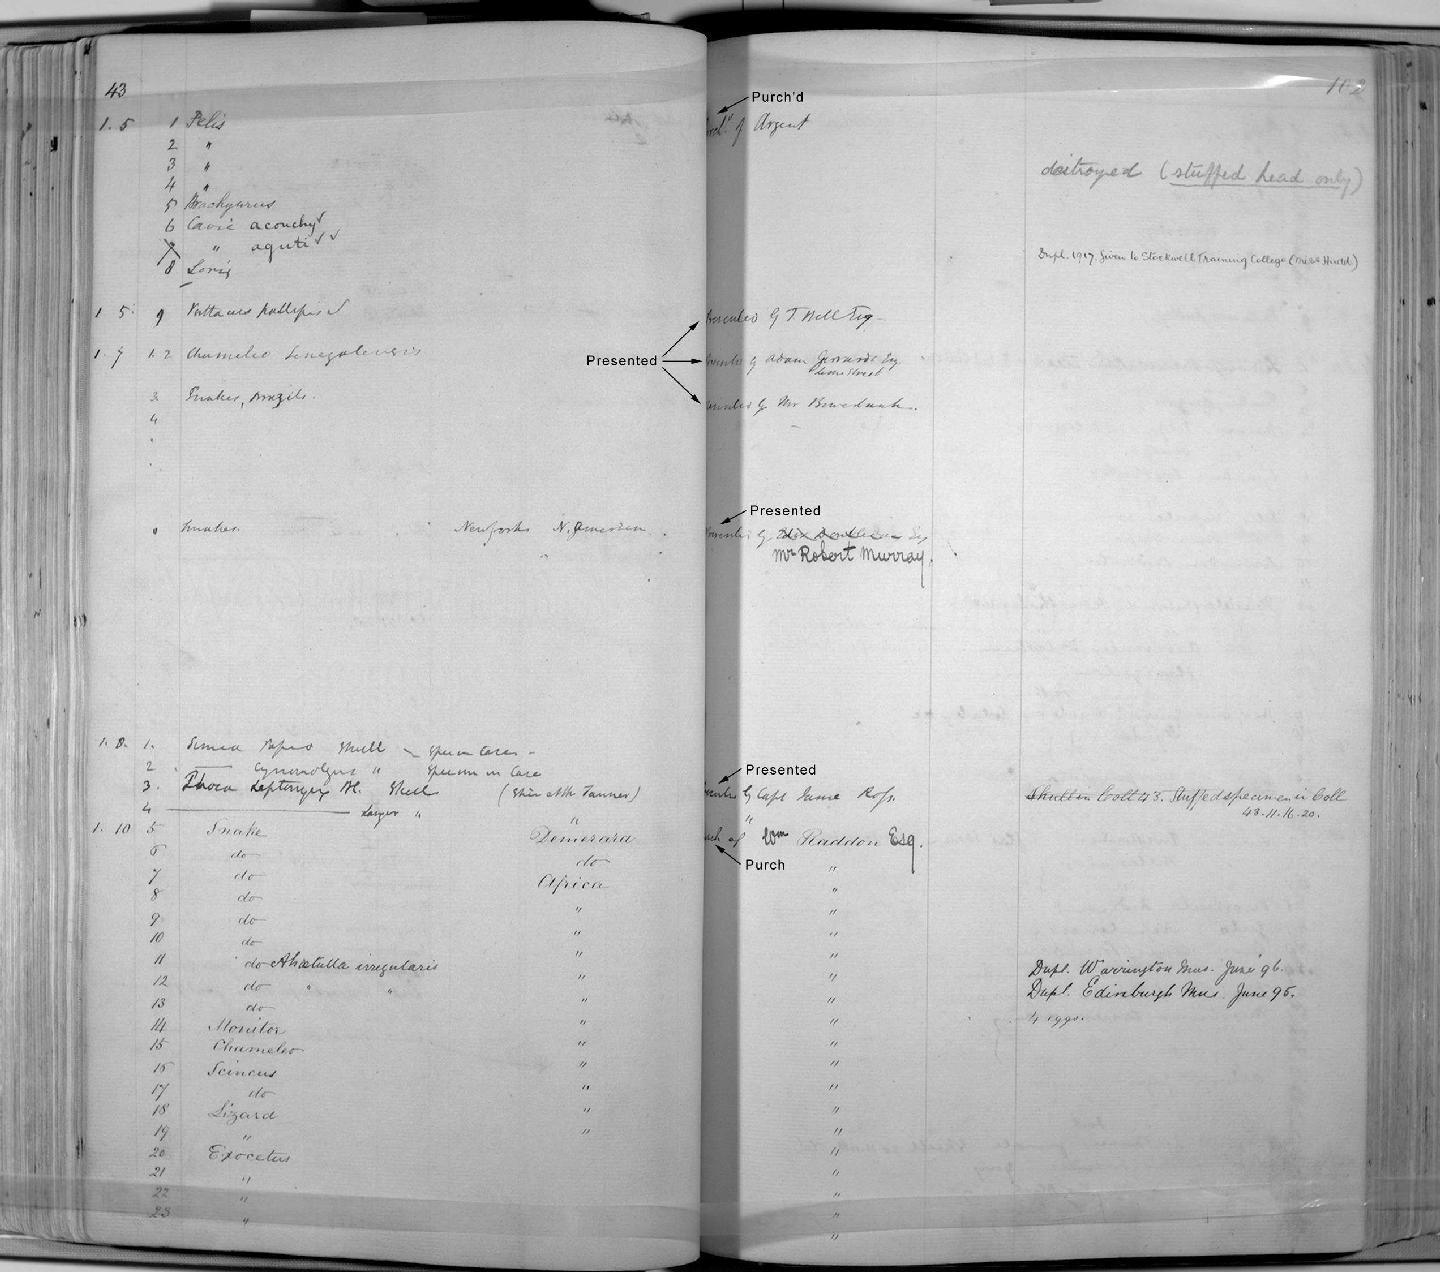 43
102
Purch'd
1. 5 1 Felis
of Argent
2 "
3 "
destroyed (stuffed head only)
4 "
5 Brachyurus
6 Cavia acouchy √
7 " aguti √ √
8 Loris
Dupl. 1917. Given to Stockwell Training College (Miss Hindd)
1 5 9 Psittacus pallipes √
Presented by T. Bell Esq
Presented
1. 7 1. 2 Chameleo Senegalensis
by Adam Esq
3 Snakes, Brazils.
by Mr
4
Presented
Snakes. New York N. American
by Esq
Mr Robert Murray.
1. 8. 1. Simia Papio Skull - Specm Cases -
2 Cynomolgus " Specimen in Case
Presented
3. Phoca Leptonyx Ad. Skull (Skin at Mr Tanner)
by Capt. James Ross.
Skull in Coll 43. Stuffed specimen in Coll
43.11.16.20.
4 Larger " "
"
1. 10 5 Snake Demerara
of Wm Raddon Esq.
6 do do
"
Purch
7 do Africa
"
8 do "
"
9 do "
"
10 do "
"
11 do Ahaetulla irregularis "
" Dupl. Warrington Mus. June 96.
12 do " " "
" Dupl. Edinburgh Mus. June 95.
13 do "
" 4 eggs.
14 Monitor "
"
15 Chameleo "
"
16 Scincus "
"
17 do "
"
18 Lizard "
"
19 " "
"
20 Exocetus
"
21 "
"
22 "
"
23 "
"